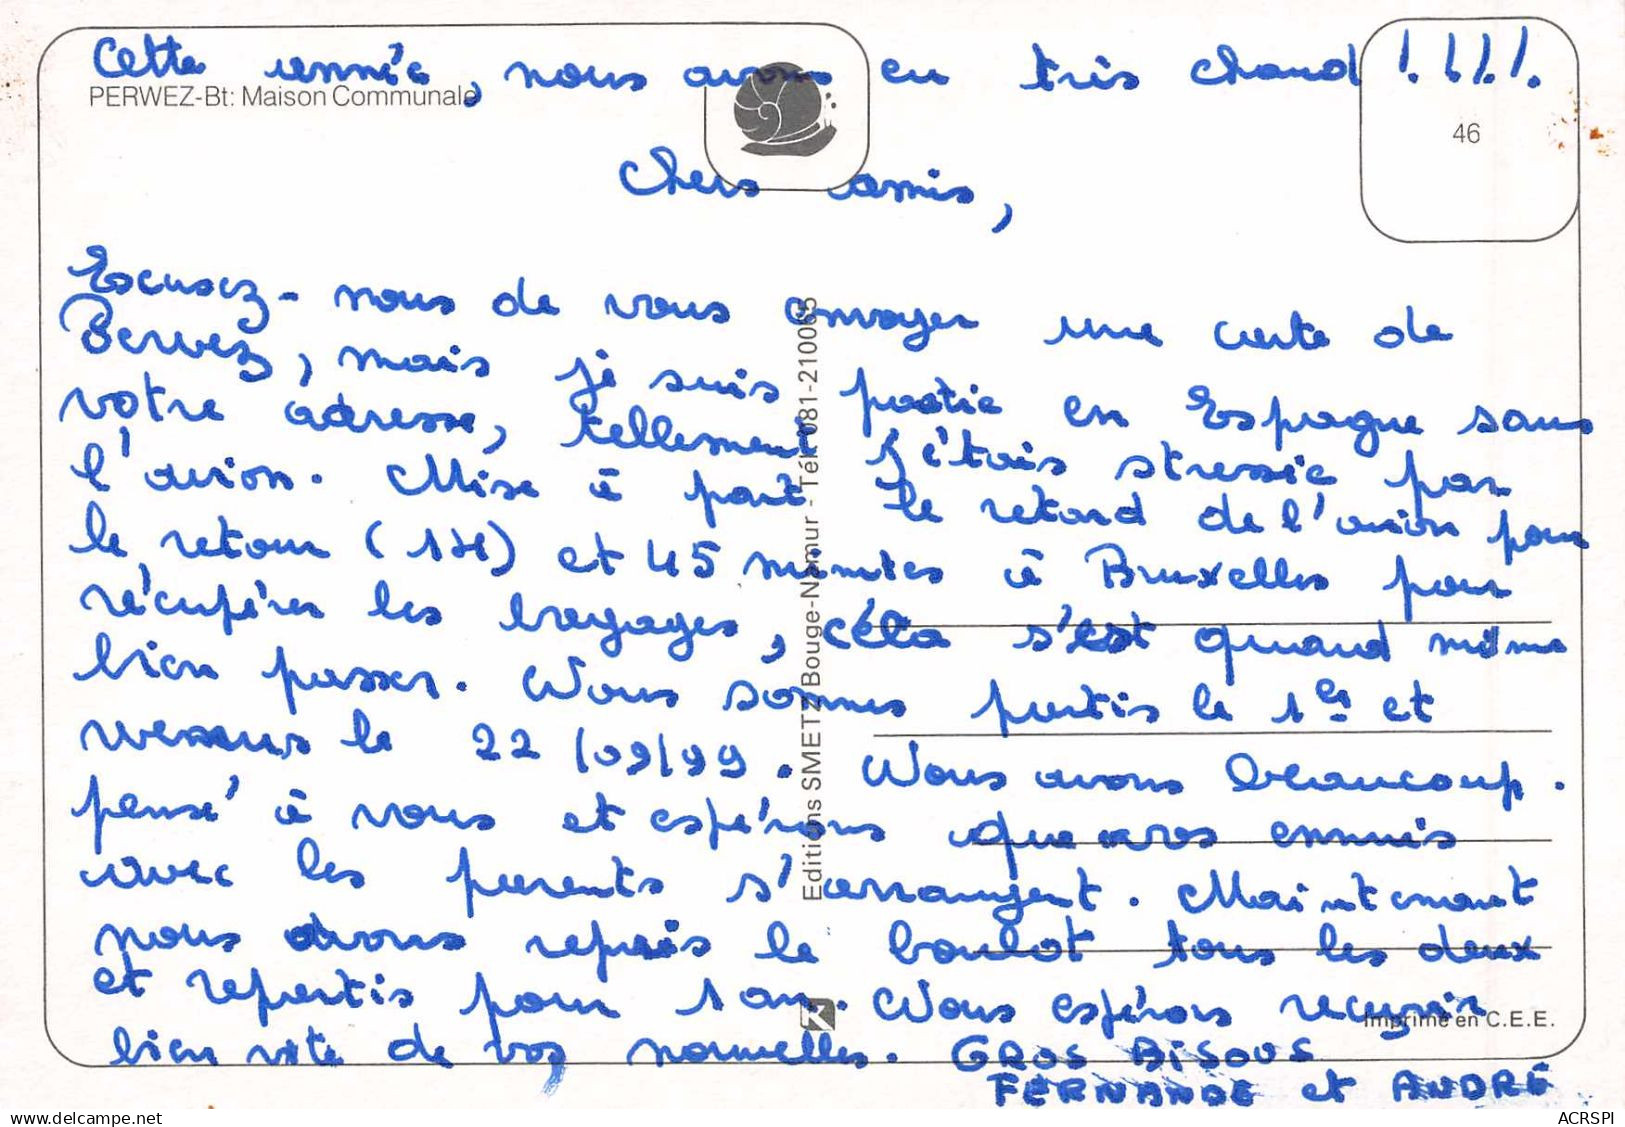 Cette année, nous avons eu très chaud !.!.!.!.
PERWEZ-Bt: Maison Communale
46
Chers amis,
Escusez-nous de vous envoyer une carte de
Perwez, mais je suis partie en Espagne sans
votre adresse, tellement j'étais stressée par
l'avion. Mise à part le retard de l'avion pour
le retour (1H) et 45 minutes à Bruxelles pour
récupérer les bagages, cela s'est quand même
bien passer. Nous sommes partis le 1er et
revenus le 22/09/99. Nous avons beaucoup.
pensé à vous et espérons que vos ennuis
avec les parents s'arrangent. Maintenant
nous avons repris le boulot tous les deux
et repartis pour 1 an. Nous espérons recevoir
bien vite de vos nouvelles. GROS BISOUS
FERNANDE et ANDRÉ
Editions SMETZ Bouge-Namur - Tél. 081-210065
Imprimé en C.E.E.
delcampe.net
ACRSPI